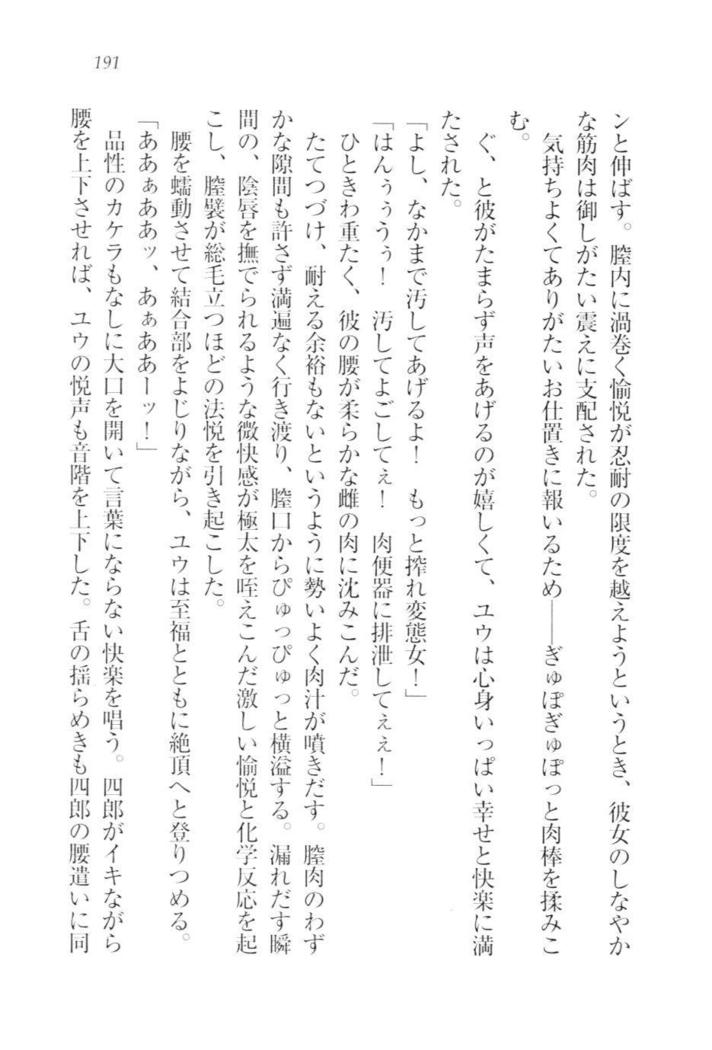 191
ンと伸ばす。膣内に渦巻く愉悦が忍耐の限度を越えようというとき、彼女のしなやか
な筋肉は御しがたい震えに支配された。
気持ちよくてありがたいお仕置きに報いるため――ぎゅぽぎゅぽっと肉棒を揉みこ
む。
ぐ、と彼がたまらず声をあげるのが嬉しくて、ユウは心身いっぱい幸せと快楽に満
たされた。
「よし、なかまで汚してあげるよ！　もっと搾れ変態女！」
「はんぅぅうぅ！　汚してよごしてぇ！　肉便器に排泄してぇぇ！」
ひときわ重たく、彼の腰が柔らかな雌の肉に沈みこんだ。
たてつづけ、耐える余裕もないというように勢いよく肉汁が噴きだす。膣肉のわず
かな隙間も許さず満遍なく行き渡り、膣口からぴゅっぴゅっと横溢する。漏れだす瞬
間の、陰唇を撫でられるような微快感が極太を咥えこんだ激しい愉悦と化学反応を起
こし、膣襞が総毛立つほどの法悦を引き起こした。
腰を蠕動させて結合部をよじりながら、ユウは至福とともに絶頂へと登りつめる。
「あぁぁああッ、あぁああーッ！」
品性のカケラもなしに大口を開いて言葉にならない快楽を唱う。四郎がイキながら
腰を上下させれば、ユウの悦声も音階を上下した。舌の揺らめきも四郎の腰遣いに同